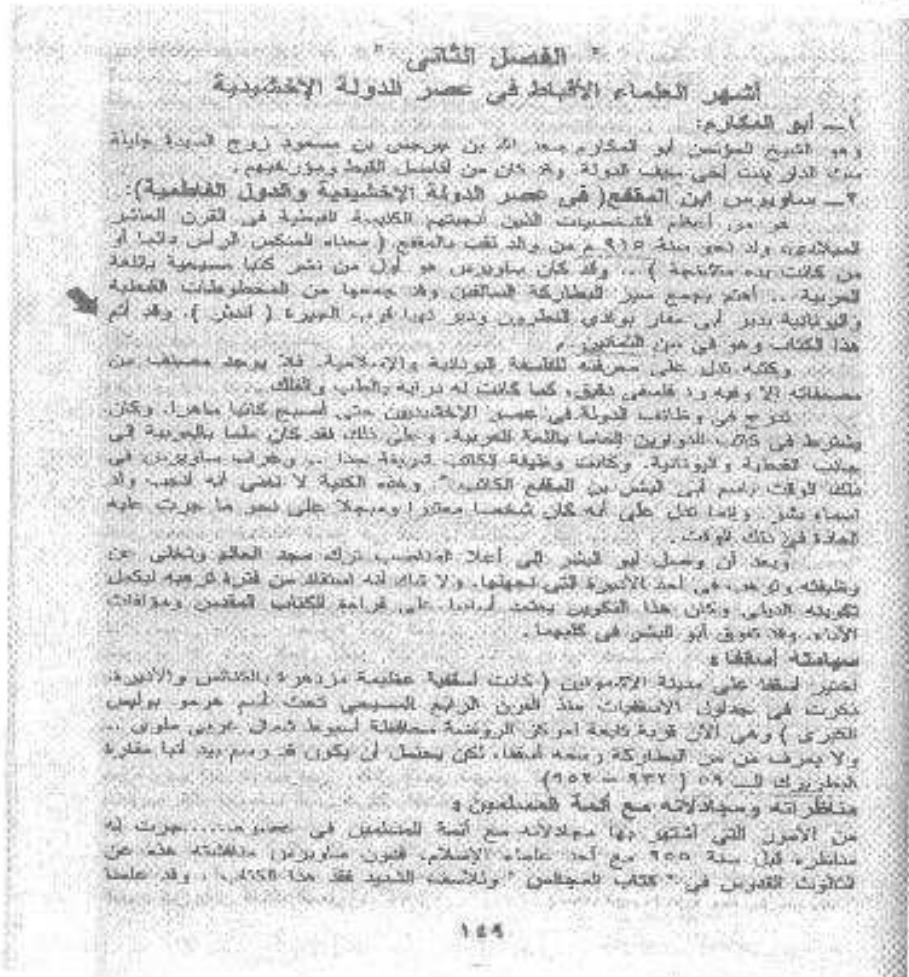 " الفصل الثانى "
أشهر العلماء الأقباط فى عصر الدولة الإخشيدية
١ــ أبو المكارم:
وهو الشيخ المؤتمن أبو المكارم سعد الله بن جرجس بن مسعود زوج السيدة جليلة
ملك الدار بنت أخى سيف الدولة. وقد كان من أفاضل القبط ومؤرخيهم.
٢ــ ساويرس ابن المقفع( فى عصر الدولة الإخشيدية والدول الفاطمية):
هو من أعظم الشخصيات الذين أنجبتهم الكنيسة القبطية فى القرن العاشر
الميلادى، ولد نحو سنة ٩١٥ م من والد لقب بالمقفع ( معناه المنكس الرأس دائما أو
من كانت يده متشنجة ) ... وقد كان ساويرس هو أول من نشر كتبا مسيحية باللغة
العربية .. أهتم بجمع سير البطاركة السالفين وقد جمعها من المخطوطات القبطية
واليونانية بدير أبى مقار بوادى النطرون ودير نهيا قرب الجيزة ( اندثر ). وقد أتم
هذا الكتاب وهو فى سن الثمانين .
وكتبه تدل على معرفته للفلسفة اليونانية والإسلامية. فلا يوجد مصنف من
مصنفاته إلا وفيه رد فلسفى دقيق، كما كانت له دراية بالطب والفلك.
تدرج فى وظائف الدولة فى عصر الإخشيديين حتى أصبح كاتبا ماهرا. وكان
يشترط فى كاتب الدواوين إلماما باللغة العربية. وعلى ذلك فقد كان ملما بالعربية إلى
جانب القبطية واليونانية. وكانت وظيفة الكاتب شريفة جدا .. وعرف ساويرس فى
ذلك الوقت باسم أبى البشر بن المقفع الكاتب". وهذه الكنية لا تعنى أنه أنجب ولد
اسماه بشر. وإنما تدل على أنه كان شخصا معتبرا ومبجلا على نحو ما جرت عليه
العادة فى ذلك الوقت.
وبعد أن وصل أبو البشر إلى أعلا المناصب ترك مجد العالم وتخلى عن
وظيفته وترهب فى أحد الأديرة التى نجهلها. ولا شك أنه استفاد من فترة ترهبه ليكمل
تكوينه الدينى وكان هذا التكوين يعتمد أساسا على قراءة الكتاب المقدس ومؤلفات
الآباء. وقد تفوق أبو البشر فى كليهما.
سيامته أسقفا :
اختير أسقفا على مدينة الاشمونين ( كانت أسقفية عظيمة مزدهرة بالكنائس والأديرة،
ذكرت فى جداول الأسقفيات منذ القرن الرابع المسيحى تحت أسم هرمو بوليس
الكبرى ) وهى الآن قرية تابعة لمركز الروضة محافظة أسيوط شمال غربى ملوى ..
ولا يعرف من من البطاركة رسمه أسقفا، لكن يحتمل أن يكون قد رسم بيد أنبا مقاره
البطريرك الـ ٥٩ ( ٩٣٢ – ٩٥٢)
مناظراته ومجادلاته مع أئمة المسلمين :
من الأمور التى أشتهر بها مجادلاته مع أئمة المسلمين فى عصره......جرت له
مناظره قبل سنة ٩٥٥ مع أحد علماء الإسلام. فدون ساويرس مناقشته هذه عن
الثالوث القدوس فى " كتاب المجالس " وللأسف الشديد فقد هذا الكتاب . وقد علمنا
١٤٩